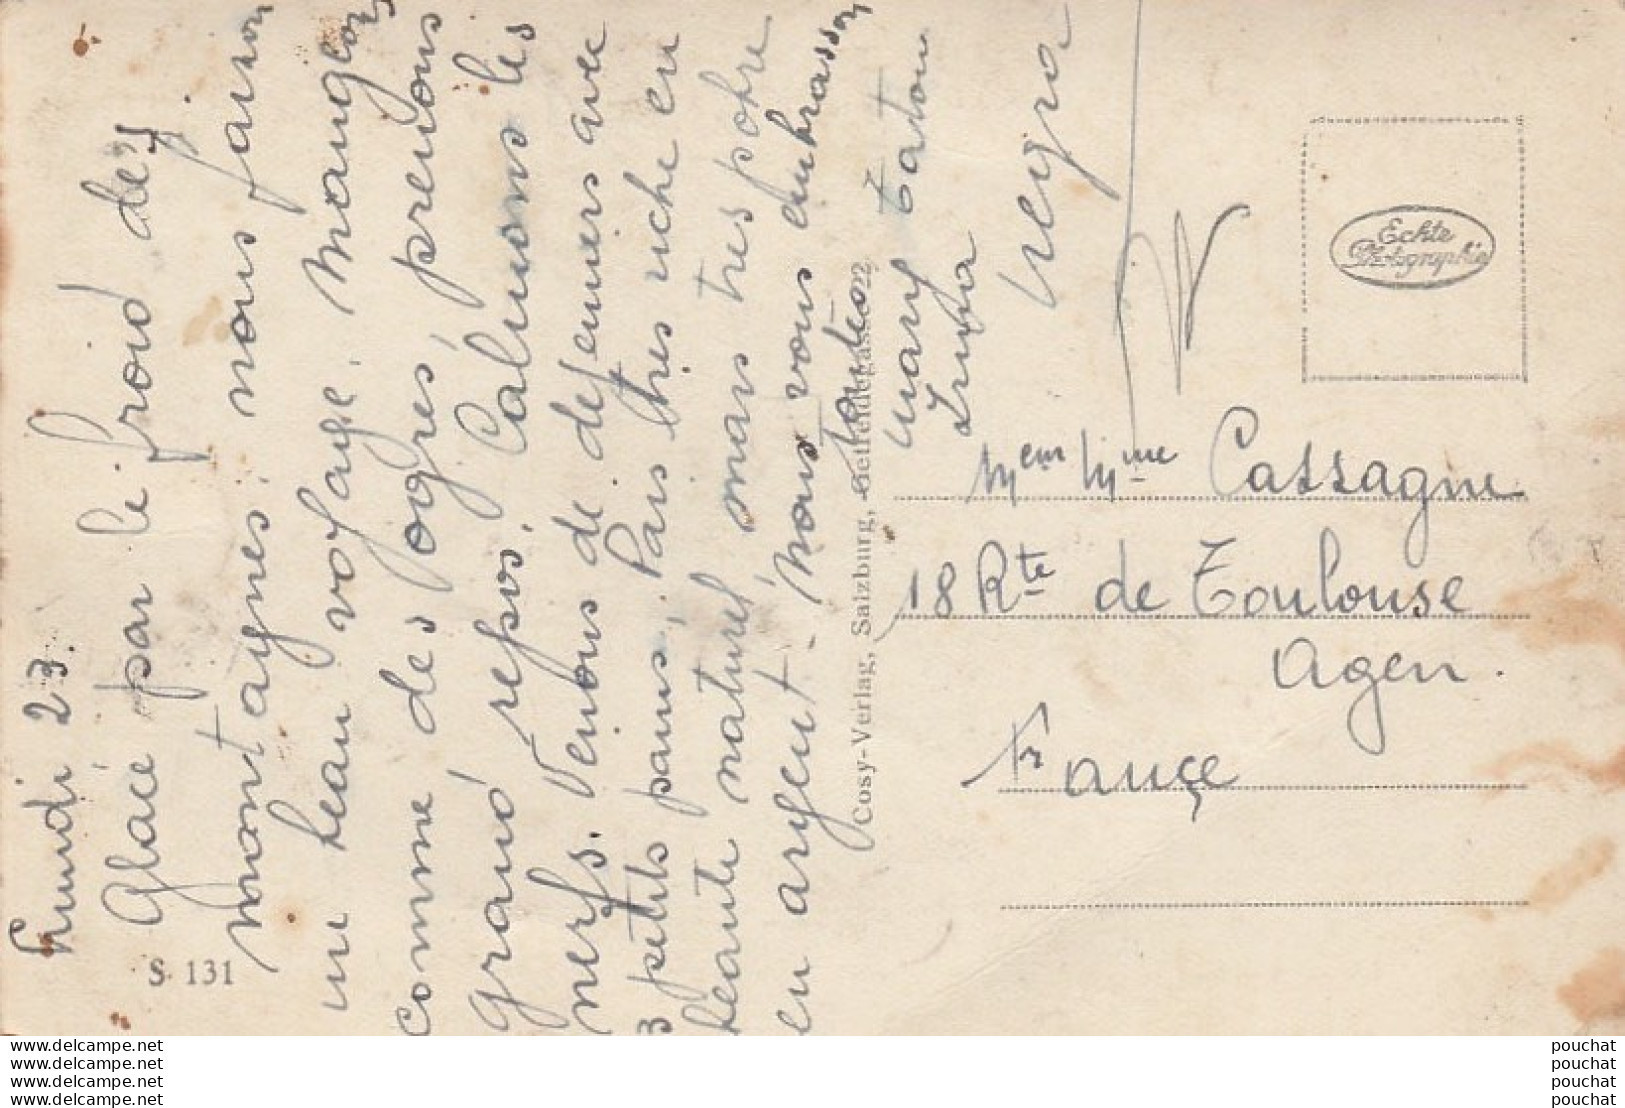 Lundi 23.
Glacé par le froid des
montagnes, nous faison
un beau voyage. Mangeons
comme des ogres, prenons
grand repos. Calmons les
nerfs. Venons de dejeuner avec
3 petits pains, Pais tres riche en
beaute naturel, mais tres pobre
en argent - Nous vous embrasson
Mary Tonton
Negra
S 131
Cosy-Verlag, Salzburg, Getreidegasse 22
Echte
Photographie
M et Mme Cassagne
18 Rte de Toulouse
Agen.
France
www.delcampe.net
www.delcampe.net
www.delcampe.net
www.delcampe.net
pouchat
pouchat
pouchat
pouchat